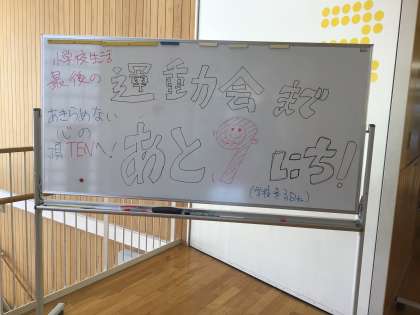 小学校生活
最後の
運動会まで
あきらめない
心の
頂TENへ
あと9にち!